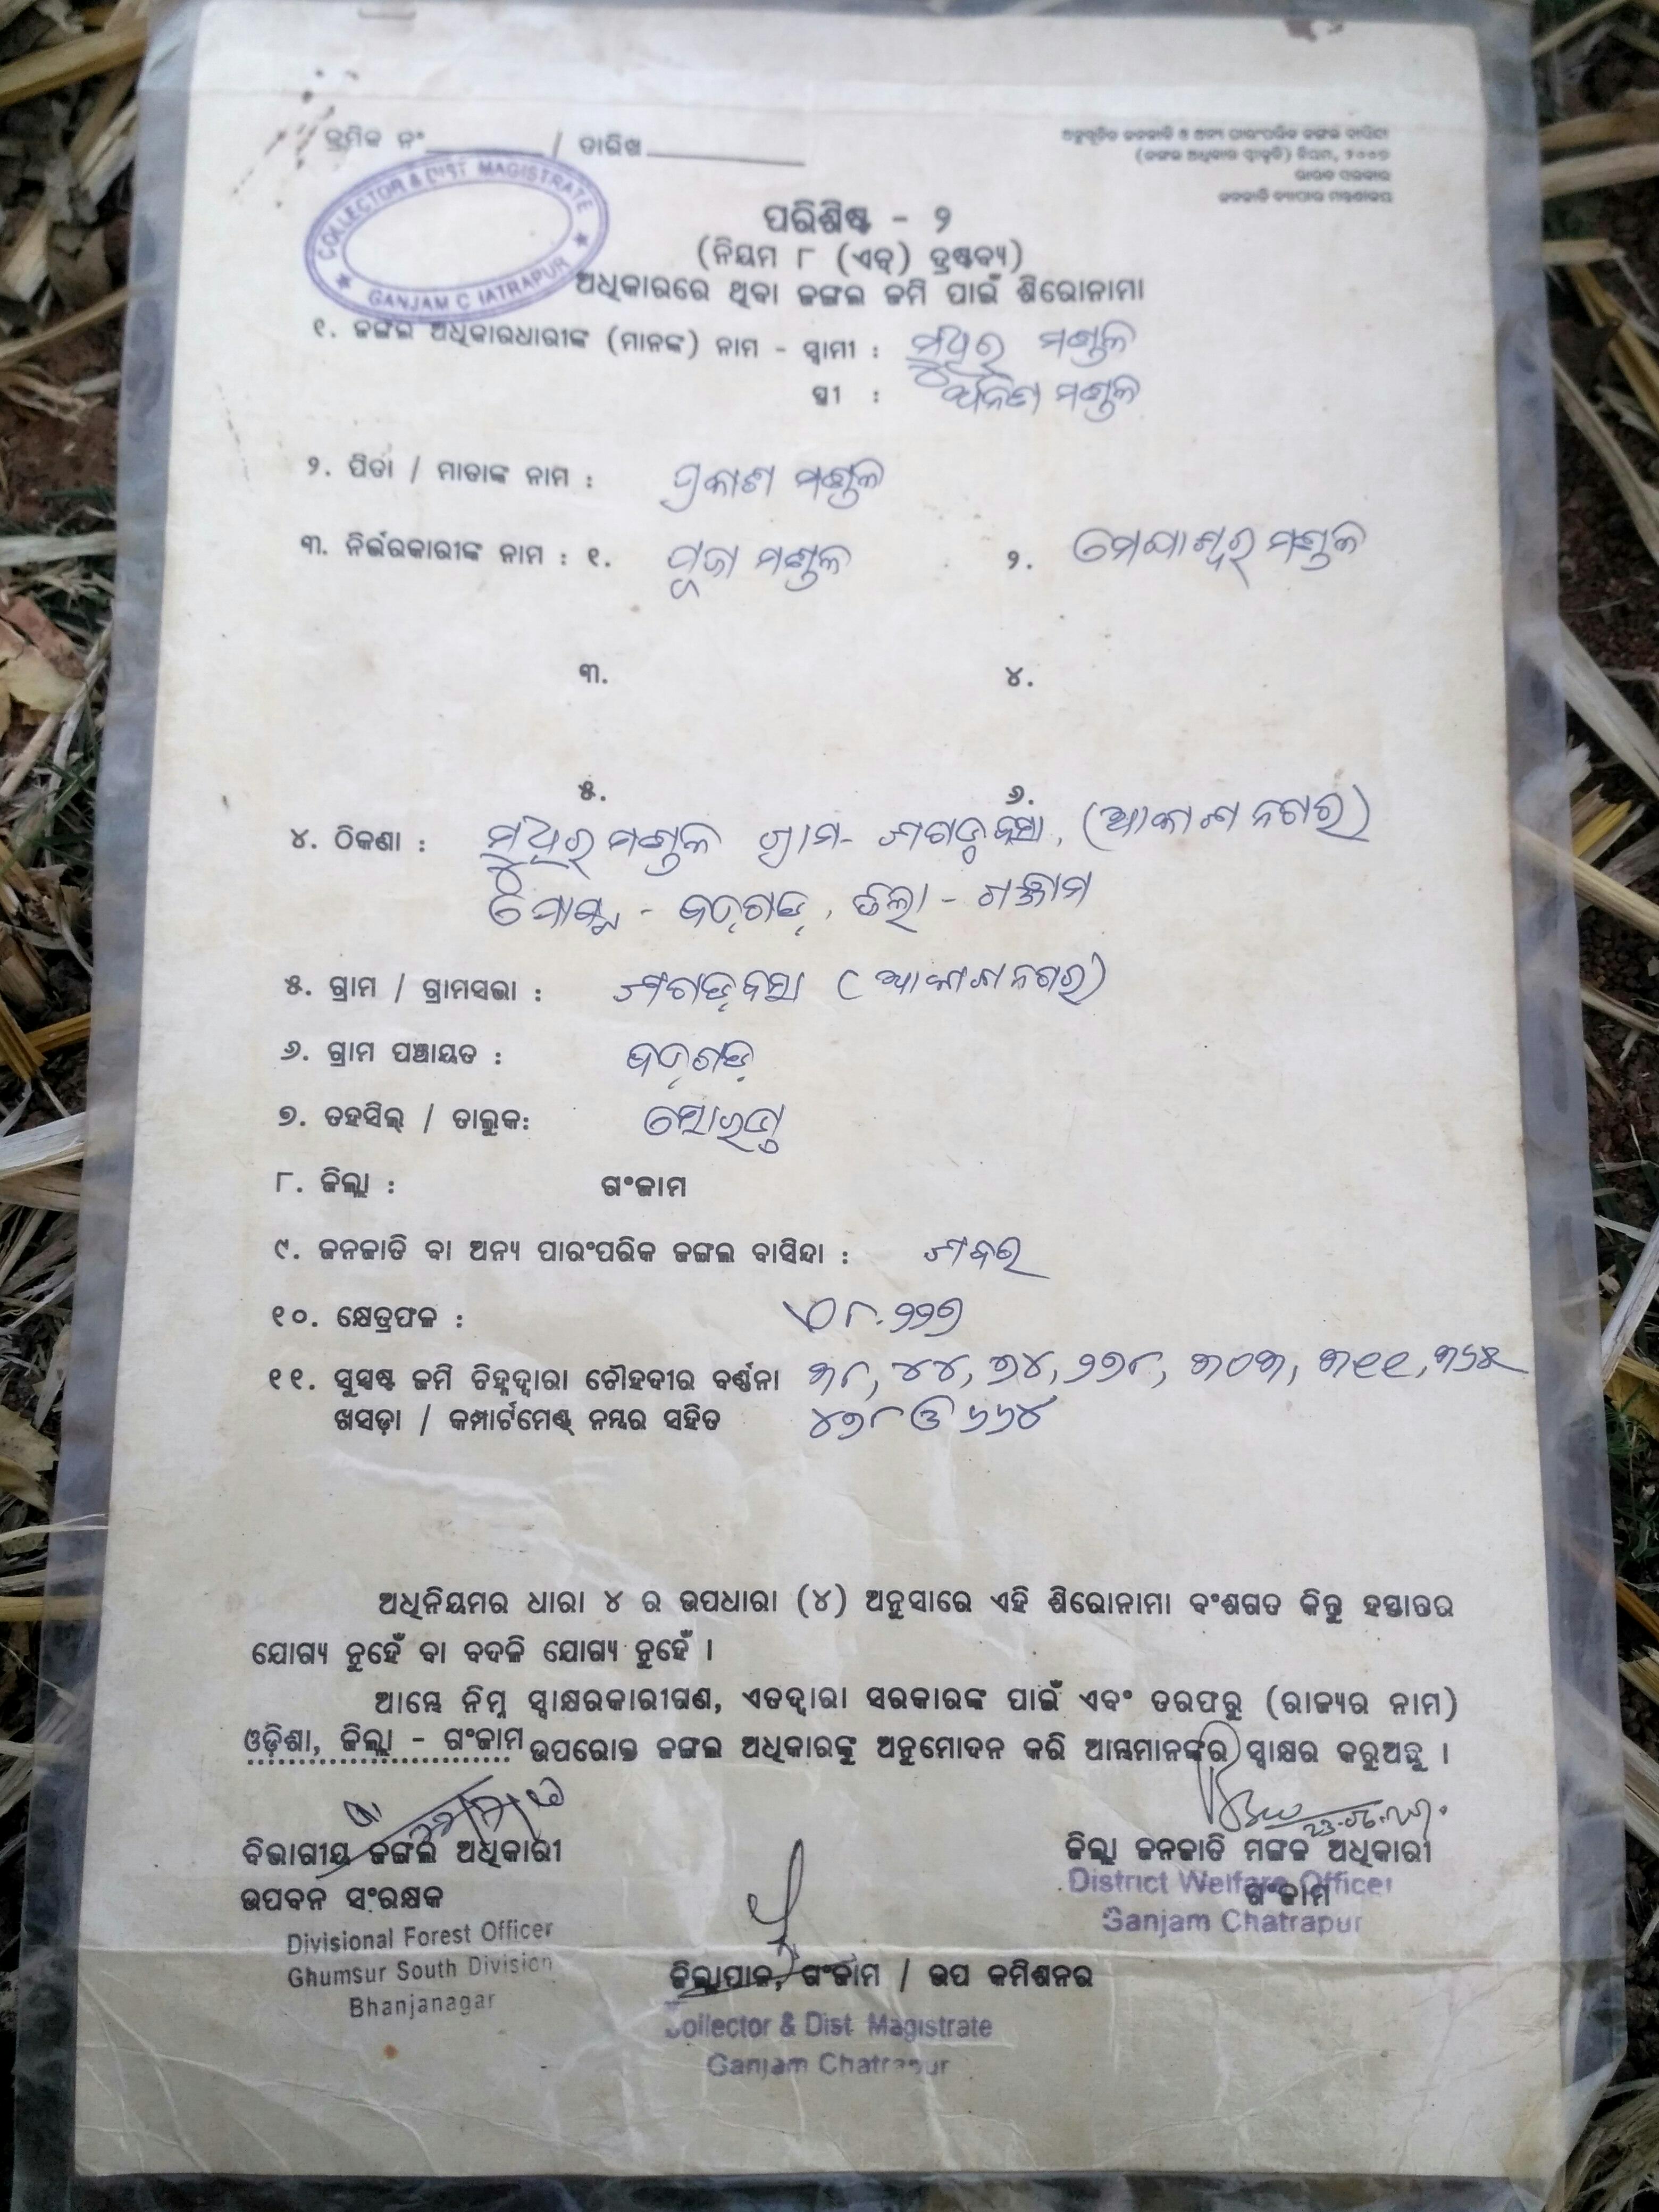 କ୍ରମିକ ନଂ / ତାରିଖ
ଅନୁସୂଚିତ ଜନଜାତି ଓ ଅନ୍ୟ ପାରଂପରିକ ଜଙ୍ଗଲ ବାସିନ୍ଦା
(ଜଙ୍ଗଲ ଅଧିକାର ସ୍ୱୀକୃତି) ନିୟମ, ୨୦୦୭
ଭାରତ ସରକାର
ଜନଜାତି ବ୍ୟାପାର ମନ୍ତ୍ରଣାଳୟ
COLLECTOR & DIST MAGISTRATE
GANJAM C IATRAPUR
ପରିଶିଷ୍ଟ - ୨
(ନିୟମ ୮ (ଏଚ୍) ଦ୍ରଷ୍ଟବ୍ୟ)
ଅଧିକାରରେ ଥିବା ଜଙ୍ଗଲ ଜମି ପାଇଁ ଶିରୋନାମା
୧. ଜଙ୍ଗଲ ଅଧିକାରଧାରୀଙ୍କ (ମାନଙ୍କ) ନାମ - ସ୍ୱାମୀ : ମଣ୍ଡଳ
ସ୍ତ୍ରୀ : ମଣ୍ଡଳ
୨. ପିତା / ମାତାଙ୍କ ନାମ : ପ୍ରକାଶ ମଣ୍ଡଳ
୩. ନିର୍ଭରକାରୀଙ୍କ ନାମ : ୧. ପୂଜା ମଣ୍ଡଳ ୨. ମଣ୍ଡଳ
୩. ୪.
୫. ୬.
୪. ଠିକଣା : ମଣ୍ଡଳ ଗ୍ରାମ- (ଆକାଶ ନଗର)
ପୋଷ୍ଟ - ବଡ଼ଗଡ଼, ଜିଲା - ଗଞ୍ଜାମ
୫. ଗ୍ରାମ / ଗ୍ରାମସଭା : (ଆକାଶ ନଗର)
୬. ଗ୍ରାମ ପଞ୍ଚାୟତ : ବଡ଼ଗଡ଼
୭. ତହସିଲ୍ / ତାଲୁକ: ସୋରଡ଼ା
୮. ଜିଲ୍ଲା : ଗଂଜାମ
୯. ଜନଜାତି ବା ଅନ୍ୟ ପାରଂପରିକ ଜଙ୍ଗଲ ବାସିନ୍ଦା : ଶବର
୧୦. କ୍ଷେତ୍ରଫଳ : ୮.୨୨୭
୧୧. ସୁସ୍ପଷ୍ଟ ଜମି ଚିହ୍ନଦ୍ୱାରା ଚୌହଦୀର ବର୍ଣ୍ଣନା ୩୮, ୪୪, ୭୪, ୨୭୮, ୩୦୩, ୩୧୧, ୩୬୫
ଖସଡ଼ା / କମ୍ପାର୍ଟମେଣ୍ଟ ନମ୍ବର ସହିତ ୪୭୮ ଓ ୬୬୪
ଅଧିନିୟମର ଧାରା ୪ ର ଉପଧାରା (୪) ଅନୁସାରେ ଏହି ଶିରୋନାମା ବଂଶଗତ କିନ୍ତୁ ହସ୍ତାନ୍ତର
ଯୋଗ୍ୟ ନୁହେଁ ବା ବଦଳି ଯୋଗ୍ୟ ନୁହେଁ ।
ଆମ୍ଭେ ନିମ୍ନ ସ୍ୱାକ୍ଷରକାରୀଗଣ, ଏତଦ୍ୱାରା ସରକାରଙ୍କ ପାଇଁ ଏବଂ ତରଫରୁ (ରାଜ୍ୟର ନାମ)
ଓଡ଼ିଶା, ଜିଲ୍ଲା - ଗଂଜାମ ଉପରୋକ୍ତ ଜଙ୍ଗଲ ଅଧିକାରଙ୍କୁ ଅନୁମୋଦନ କରି ଆମ୍ଭମାନଙ୍କର ସ୍ୱାକ୍ଷର କରୁଅଛୁ ।
ବିଭାଗୀୟ ଜଙ୍ଗଲ ଅଧିକାରୀ
ଉପବନ ସଂରକ୍ଷକ
Divisional Forest Officer
Ghumsur South Division
Bhanjanagar
ଜିଲ୍ଲା ଜନଜାତି ମଙ୍ଗଳ ଅଧିକାରୀ
District Welfare Officer
ଗଂଜାମ
Ganjam Chatrapur
ଜିଲ୍ଲାପାଳ, ଗଂଜାମ / ଉପ କମିଶନର
Collector & Dist Magistrate
Ganjam Chatrapur